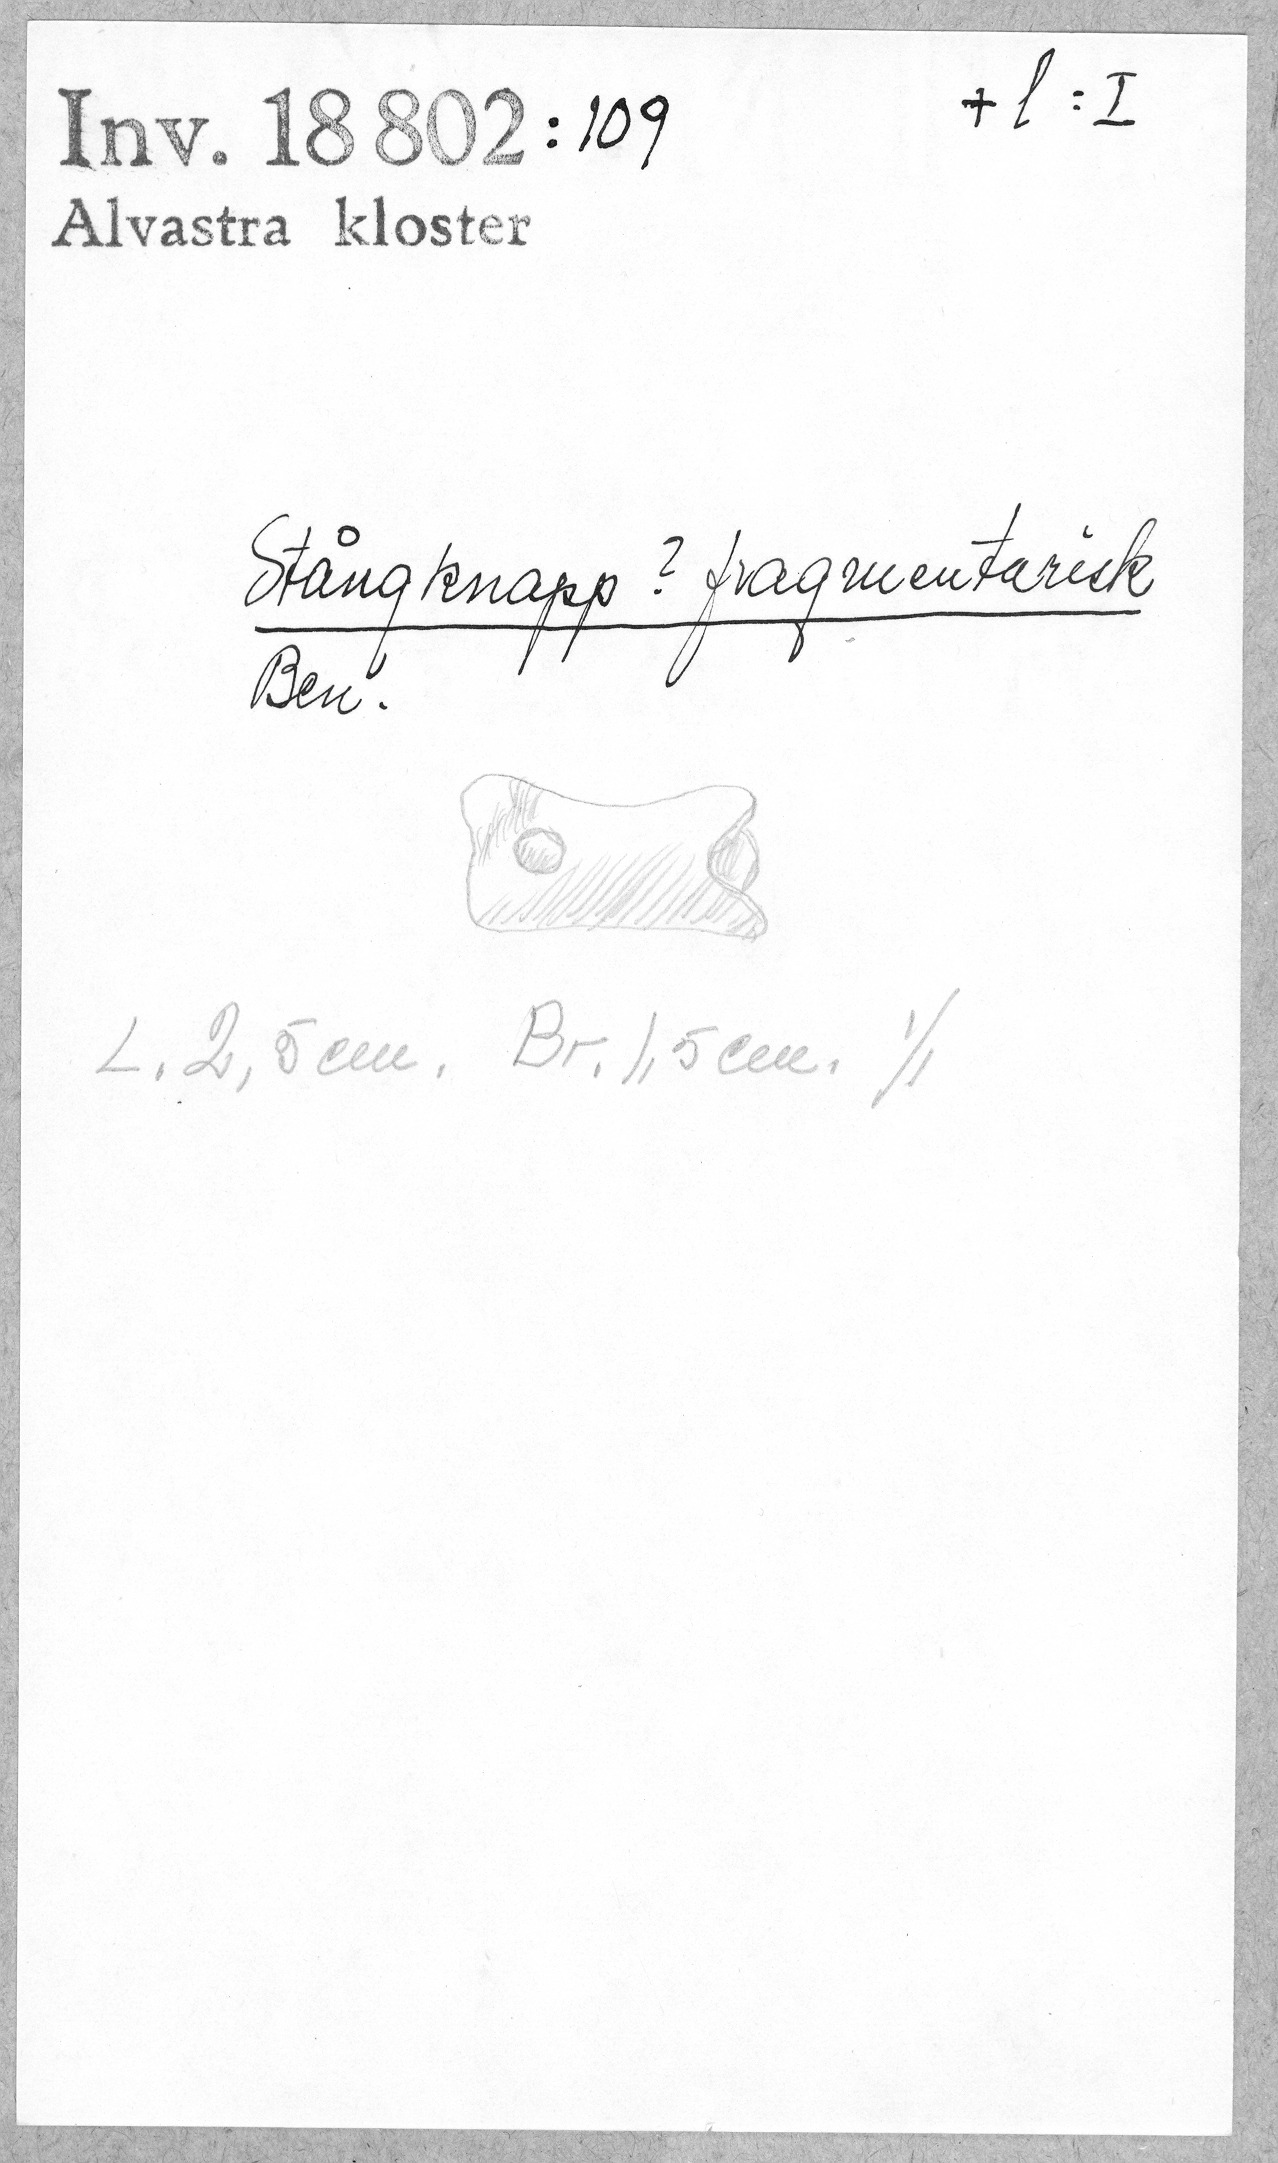 Inv. 18 802:109
+ l : I
Alvastra kloster
Stångknapp? fragmentarisk
Ben.
L. 2,5 cm. Br. 1,5 cm. 1/1